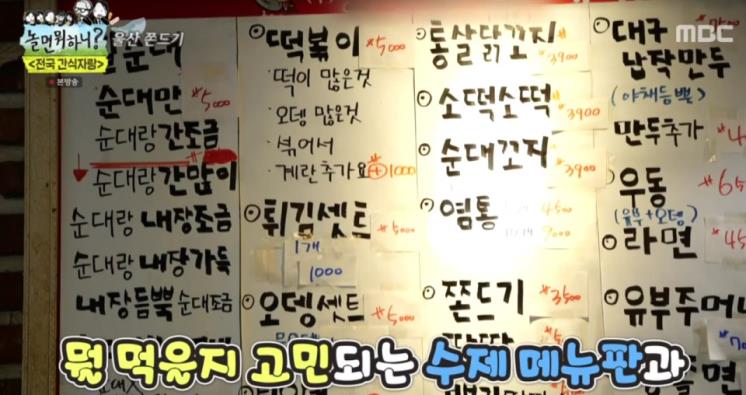 놀면뭐하니?
울산 쫀드기
<전국 간식자랑>
본방송
MBC
순대만 5000
순대랑 간조금
순대랑 간많이
순대랑 내장조금
순대랑 내장가득
내장듬뿍 순대조금
떡볶이 5000
·떡이 많은것
·오뎅 많은것
·섞어서
·계란추가요 + 1000
튀김셋트 5000
1개
1000
오뎅셋트 5000
통살닭꼬지 3900
소떡소떡 3900
순대꼬지 3900
염통 4500
9000
쫀드기 3500
대구
납작만두
(야채듬뿍)
만두추가
우동
(유부+오뎅)
라면
유부주머니
뭘 먹을지 고민되는 수제 메뉴판과